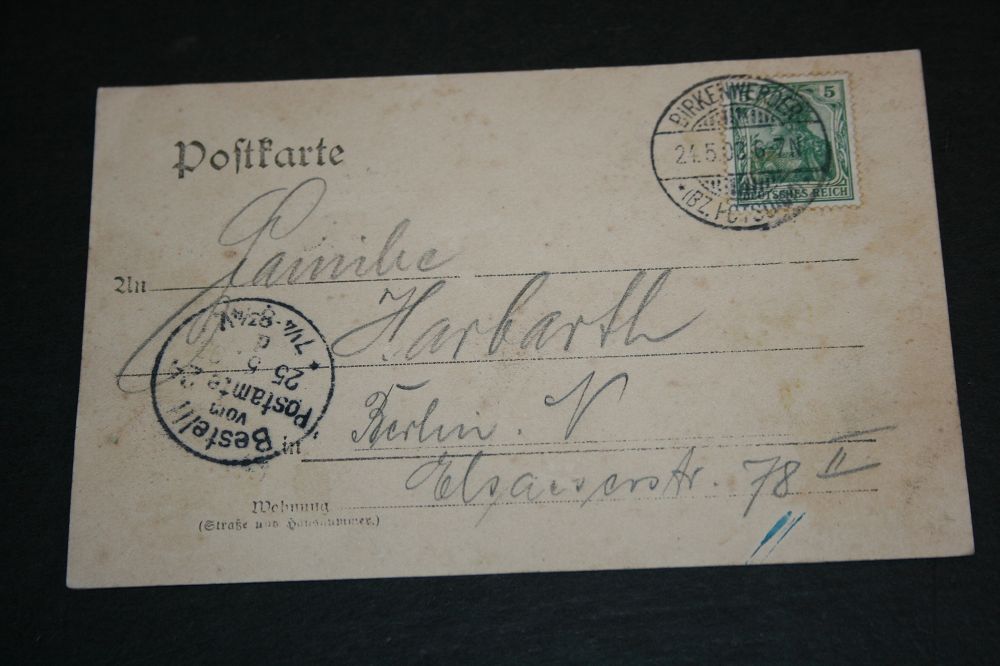 Postkarte
BIRKENWERDER
24.5.02.6-7N
* (BZ. POTSDAM)
5
DEUTSCHES REICH
An Familie
Harbarth
in Berlin. N
Elsasserstr. 78 II
Wohnung
(Straße und Hausnummer.)
Bestellt
vom
Postamte
25
5
7 1/4-8 3/4 N